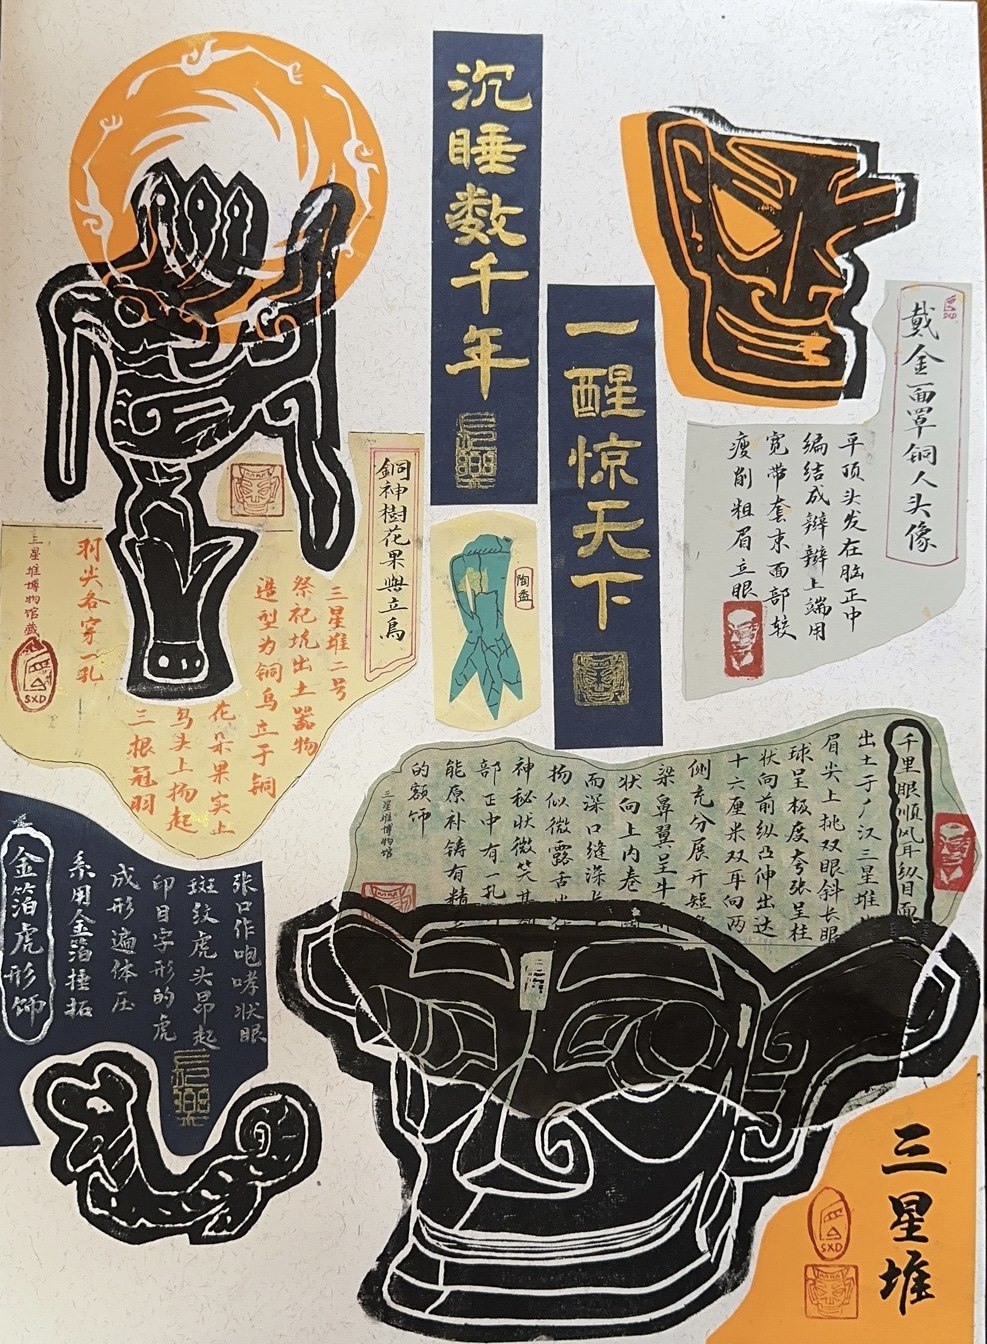 沉睡数千年
一醒惊天下
戴金面罩铜人头像
平顶头发在脑正中
编结成辫辫上端用
宽带套束面部较
瘦削粗眉立眼
銅神樹花果與立鳥
三星堆二号
祭祀坑出土器物
造型为铜鸟立于铜
花朵果实上
鸟头上扬起
三根冠羽
羽尖各穿一孔
三星堆博物馆藏
SXD
陶盉
千里眼顺风耳纵目面
出土于广汉三星堆
眉尖上挑双眼斜长眼
球呈极度夸张呈柱
状向前纵凸伸出达
十六厘米双耳向两
侧充分展开短鼻
梁鼻翼呈牛
状向上内卷
而深口缝深长
扬似微露舌
神秘状微笑其额
部正中有一孔
能原补铸有精
的额饰
三星堆博物馆
金箔虎形饰
系用金箔捶拓
成形遍体压
印目字形的虎
斑纹虎头昂起
张口作咆哮状眼
三星堆
SXD